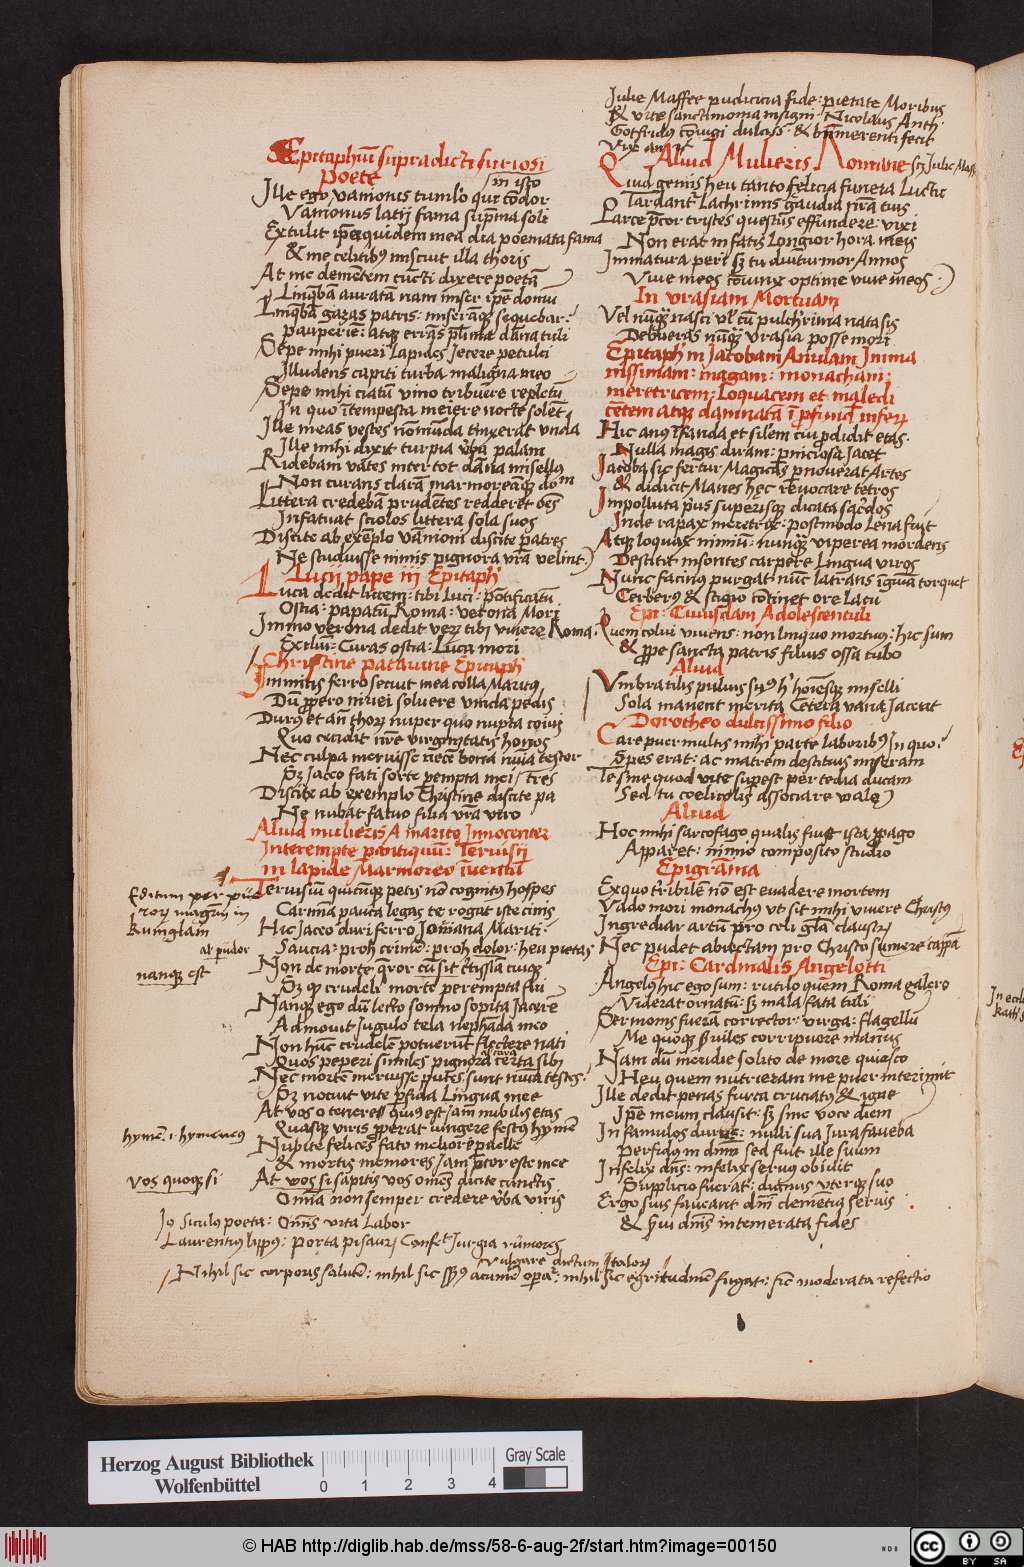 Epitaphiu supradicti furiosi
poete
in isto
Ille ego vamonus tumulo qui condor
Vamonus latij fama suprma soli
Extulit ipe quidem mea dia poemata fama
& me celitibus miscuit illa thoris
At me dementem cuncti dixere poetam
Linqbam auratam nam miser ipe domu
Linqba gazas patris: miserāq sequebar:
pauperiem: atq errās plima dāna tuli
Sepe mihi pueri Lapides Jecere petulci
Illudens capiti turba maligna meo
Sepe mihi ciatū vino tribuere repletū
In quo itempesta meiere nocte solet
Ille meas vestes nomuda tinxerat unda
Ille mihi dixit turpia vba palam
Ridebam vates inter tot dāna misellus
Non curans clara marmoreāq dom
Littera credebā prudētes redderet oēs
Infatuat sciolos littera sola suos
Discite ab exēplo vāmoni discite patres
Ne studuisse nimis pignora vrā velint
Lucij pape iij Epitaph
Luca dedit lucem: tibi Luci: pōtificatū
Ostia: papatū Roma: verona Mori
Immo verona dedit verū tibi vivere Roma.
Exiliu: Curas ostia: Luca mori
Christine patauine Epitaph
Immitis ferro secuit mea colla Maritus
Dū ppero niuei soluere vincla pedis
Durus et an thorū nuper quo nupta coiui
Quo cecidit nre virginitatis honos
Nec culpa meruisse necē bona nuia testor
Sz Jaceo fati sorte pempta mei
tres
Discite ab exemplo Christine discite pa
Ne nubat fatuo filia vrā viro
Aliud mulieris A marito Innocenter
Interempte pantiquum: Teruisij
in lapide Marmoreo iuentū
Teruisiū quicuq petis nō cognitus hospes
Carmīa pauca legas te rogat iste cinis
Hic Jaceo duri ferro Jomana Mariti
Saucia: proh crimē: proh dolor: heu pietas
Non de morte qror cū sit certissīa cuiq
Sz qp crudeli morte perempta fui
Nanq ego dū lecto somno sopita Jacerē
Admouit Jugulo tela nephāda meo
Non hūc crudelē potuerūt flectere nati
Quos peperi similes pignora certa sibi
Nec mortē meruisse putes: sunt nuia testes:
Sz nocuit vite pfida Lingua mee
At vos o tenere quis est Jam nubilis etas
Quasq viris pperat iungere festus hymē
Nubite felices fato meliore puelle
& mortis memores Jam pcor este mee
At vos si sapitis vos omēs dicite cunctis
Omīa non semper credere vba viris
Io Siculus poeta: Omīs vita Labor
Laurentius lippus: porta pisauri Confet Jurgia rumores
vulgare dictum Italorū
Nihil sic corporis salutē: nihil sic spūs acumē opat: nihil sic egritudinē fugat: sic moderata refectio
Editum per
rorū magnū in
Kunglam
al pudor
nanque est
hymē. i. hymeneus
vos quoque si
Julie Maffee pudicicia fide: pietate Moribus
& vite sanctimonia insigni Nicolaus Anth
Gotfridus cōiugi dulciss. & bnmerenti fecit
Vix an
Aliud Mulieris Romane sz Julie Maff
Quid gemis heu tanto felicia funera Luctu
Tardant Lachrimis gaudia nrā tuis
Parce pcor tristes questus effundere: vixi
Non erat in fatis Longior hora meis
Immatura peri sz tu diuturnior Annos
Viue meos cōiunx optime viue meos
In vrasiam Mortuam
Vel nūq nasci vl cū pulchrima nata sis
Debueras nūq vrasia posse mori
Epitaph in Jacobam Anulam Inima
nissimam: magam: monacham:
meretricem: Loquacem et maledi
cētem atq damnatā ī pfundū inferū
Hic anus ifanda et silem cui pdidit etas.
Nulla magis diram: pniciosa Jacet
Jacoba sic fertur Magicas pnouerat Artes
& didicit Manes hec reuocare tetros
Impolluta prius superisq dicata sacdos
Inde rapax meretrix: postmodo Lena fuit
Atq loquax nimiū: nunq viperea mordens
Destitit insontes carpere Lingua viros
Nunc facinus purgat: nūc latrans ignea torquet
Cerberus & stigio cotinet ore Lacu
Epi: Cuiusdam Adolescentuli
Quem colui viuens: non linquo mortuus: hic sum
& ppe sancta patris filius ossa cubo
Aliud
Vmbratilis puluis sus h hoiesq miselli
Sola manent merita Cetera vana Jacent
Dorotheo dulcissimo filio
Care puer multis mihi parte laboribus In quo.
Spes erat: ac matrem destituis miseram
Te sine quod vite supest per tedia ducam
Sed tu coelicolis associare vale
Aliud
Hoc mihi sarcofago qualis fuit ista ppago
Apparet: nimio composito studio
Epigrāma
Exquo tribilē nō est euadere mortem
Vado mori monachus vt sit mihi viuere Christus
Ingrediar artum pro celi gla claustrū
Nec pudet abiectam pro Christo sumere cappā
Epi: Cardinalis Angelotti
Angelus hic ego sum: rutilo quem Roma galero
Viderat ornatū: sz mala fata tuli
Sermonis fuerā corrector: virga: flagellū
Me quoq seruiles corripuere manus
Nam dū meridie solito de more quiesco
Heu quem nutrieram me puer interimit
Ille dedit penas furta cruciatus & igne
Ipe meum clausit: sz sine voce diem
In famulos durus: nulli sua Jura faueba
Perfidus in dnm sed fuit ille suum
Infelix dns: infelix seruus obiuit
Supplicio fuerat: dignus vterq suo
Ergo suis faueant dmi clementia seruis
& sui dnis intemerata fides
Herzog August Bibliothek
Wolfenbüttel
0 1 2 3 4
Gray Scale
© HAB http://diglib.hab.de/mss/58-6-aug-2f/start.htm?image=00150
cc BY SA